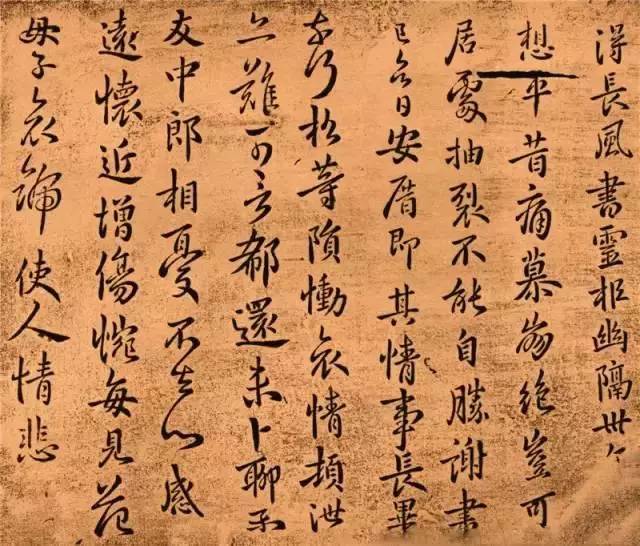 得長風書靈柩幽隔卅年
想平昔痛慕崩絕豈可
居處抽裂不能自勝謝書
已令日安厝即其情事長畢
奈何松等隕慟哀情頓泄
亦難可言郗還未卜聊示
友中郎相憂不去心感
遠懷近增傷惋每見範
母子哀號使人情悲